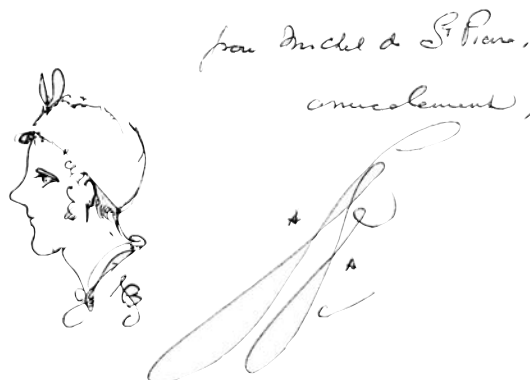 pour Michel de St Pierre,
amicalement,